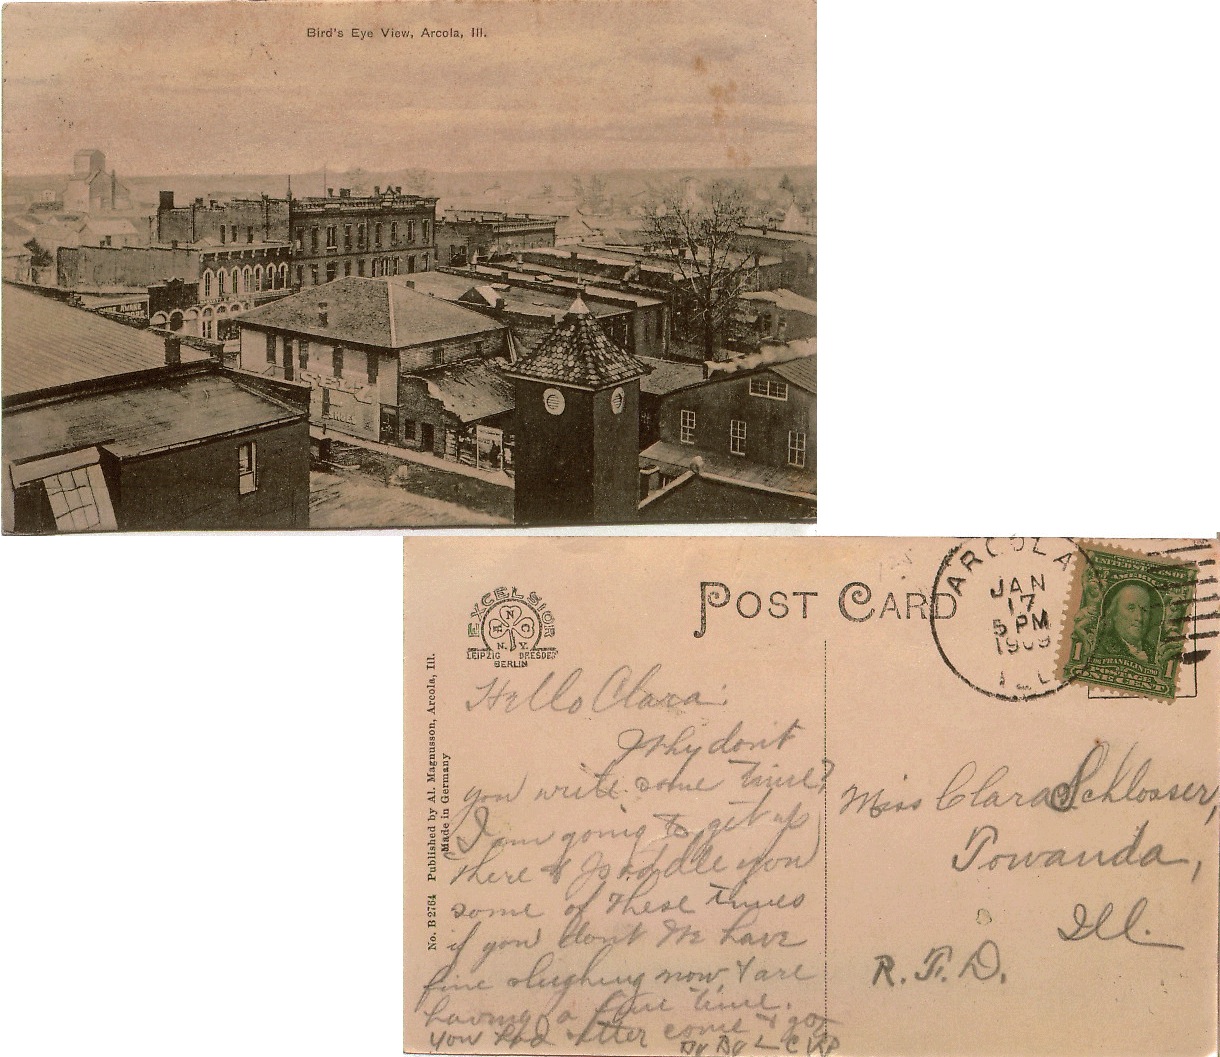 Bird's Eye View, Arcola, Ill.
POST CARD
EXCELSIOR
N.Y.
LEIPZIG DRESDEN
BERLIN
ARCOLA
JAN
17
5 PM
1909
ILL
UNITED STATES OF
AMERICA
1 FRANKLIN 1
POSTAGE
ONE CENT
No. B 2764 Published by Al. Magnusson, Arcola, Ill.
Made in Germany
Hello Clara:
Why dont
you write some time?
I am going to get up
there & paddle you
some of these times
if you dont We have
fine sleighing now & are
having a fine time.
you had better come & go
By By L C
Miss Clara Schlosser,
Towanda,
Ill.
R. F. D.